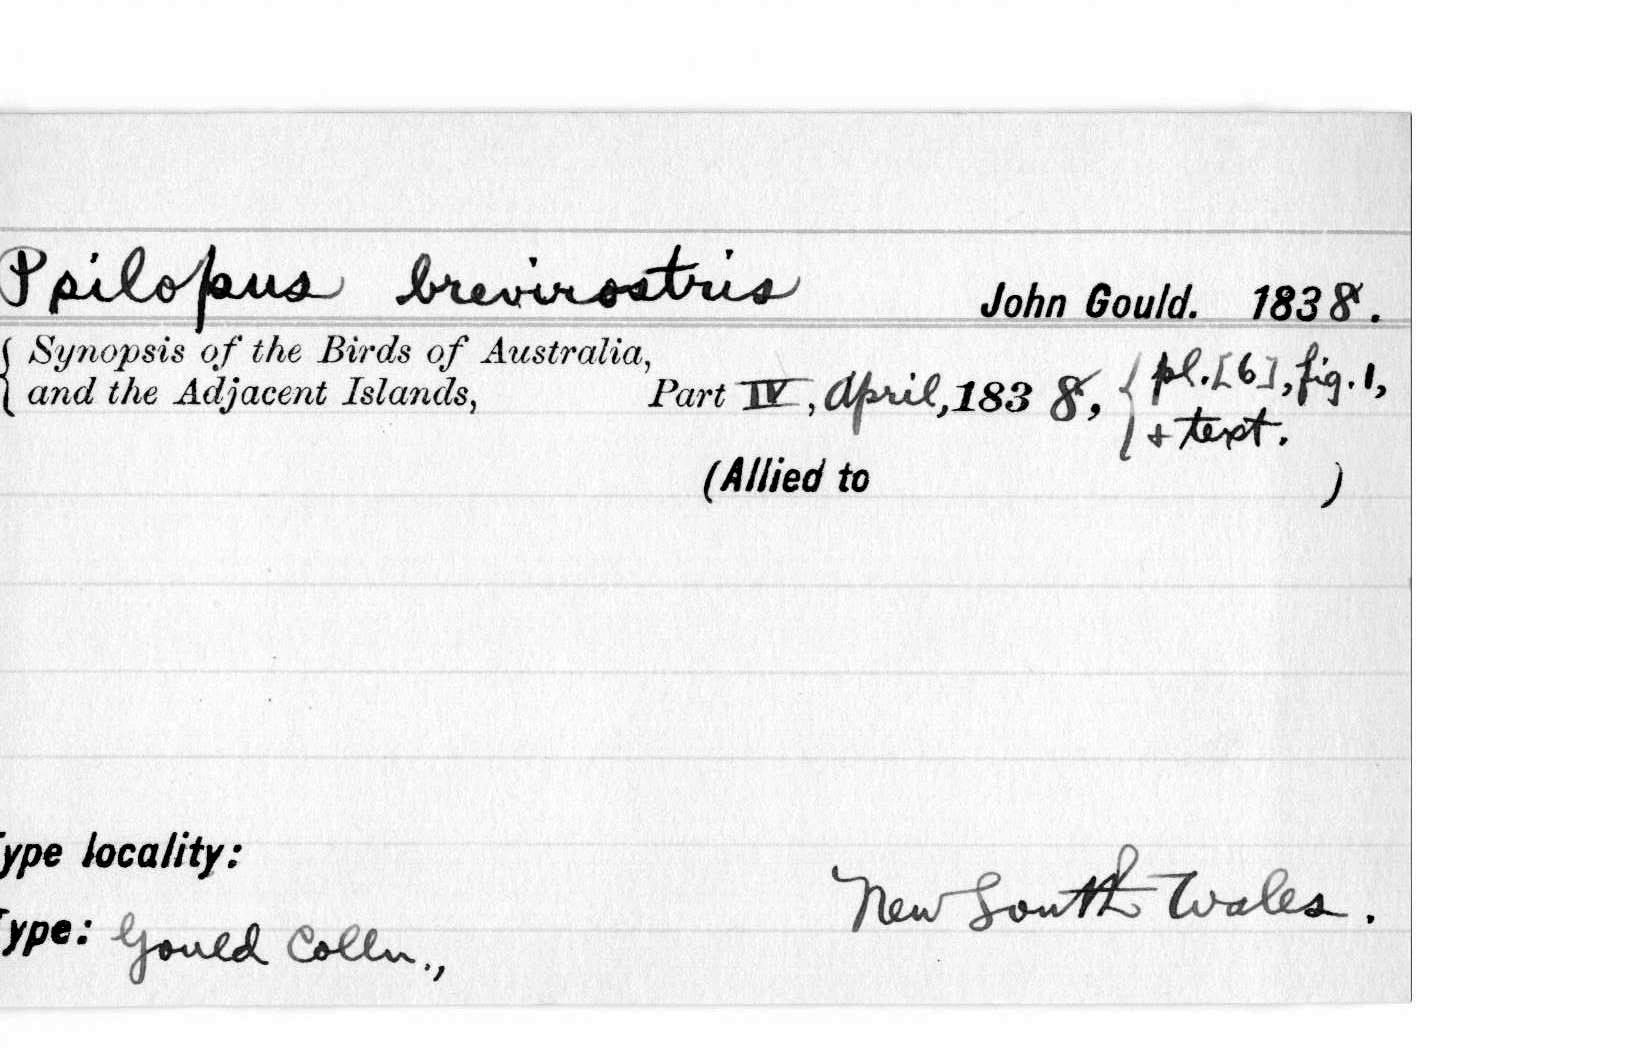 Psilopus brevirostris John Gould. 1838.
{ Synopsis of the Birds of Australia,
and the Adjacent Islands, Part IV, April, 1838, { pl. [6], fig. 1,
+ text.
(Allied to )
ype locality: New South Wales.
Type: Gould Colln.,